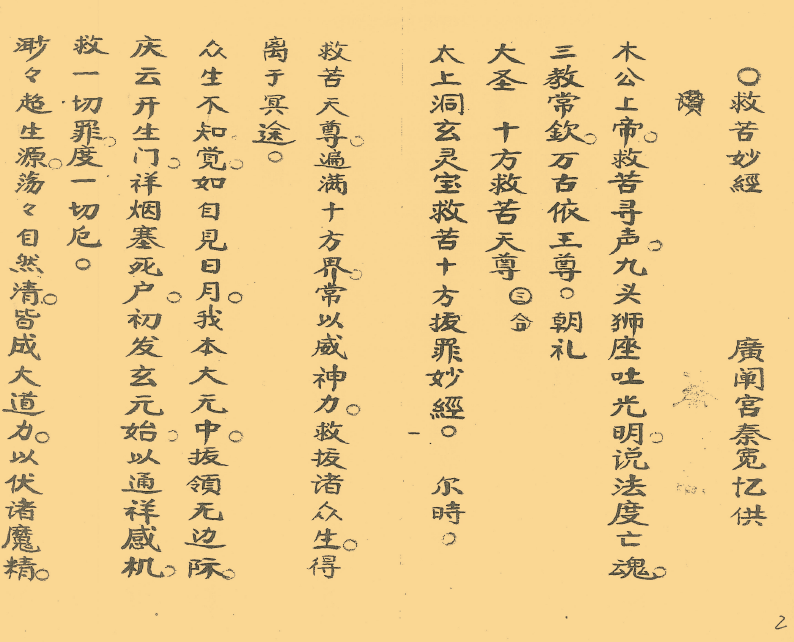 ○救苦妙經　廣阐宫秦宽忆供
讚
木公上帝。救苦寻声。九头狮座吐光明。说法度亡魂。
三教常欽。万古依王尊。朝礼
大圣　十方救苦天尊　㊂合
太上洞玄灵宝救苦十方拔罪妙經。　尔時。
救苦天尊。遍满十方界。常以威神力。救拔诸众生。得
离于冥途。
众生不知觉。如目見日月。我本大元中。拔領无边际。
庆云开生门。祥烟塞死户。初发玄元始。以通祥感机。
救一切罪。度一切厄。
渺々超生源。荡々自然清。皆成大道力。以伏诸魔精。
2